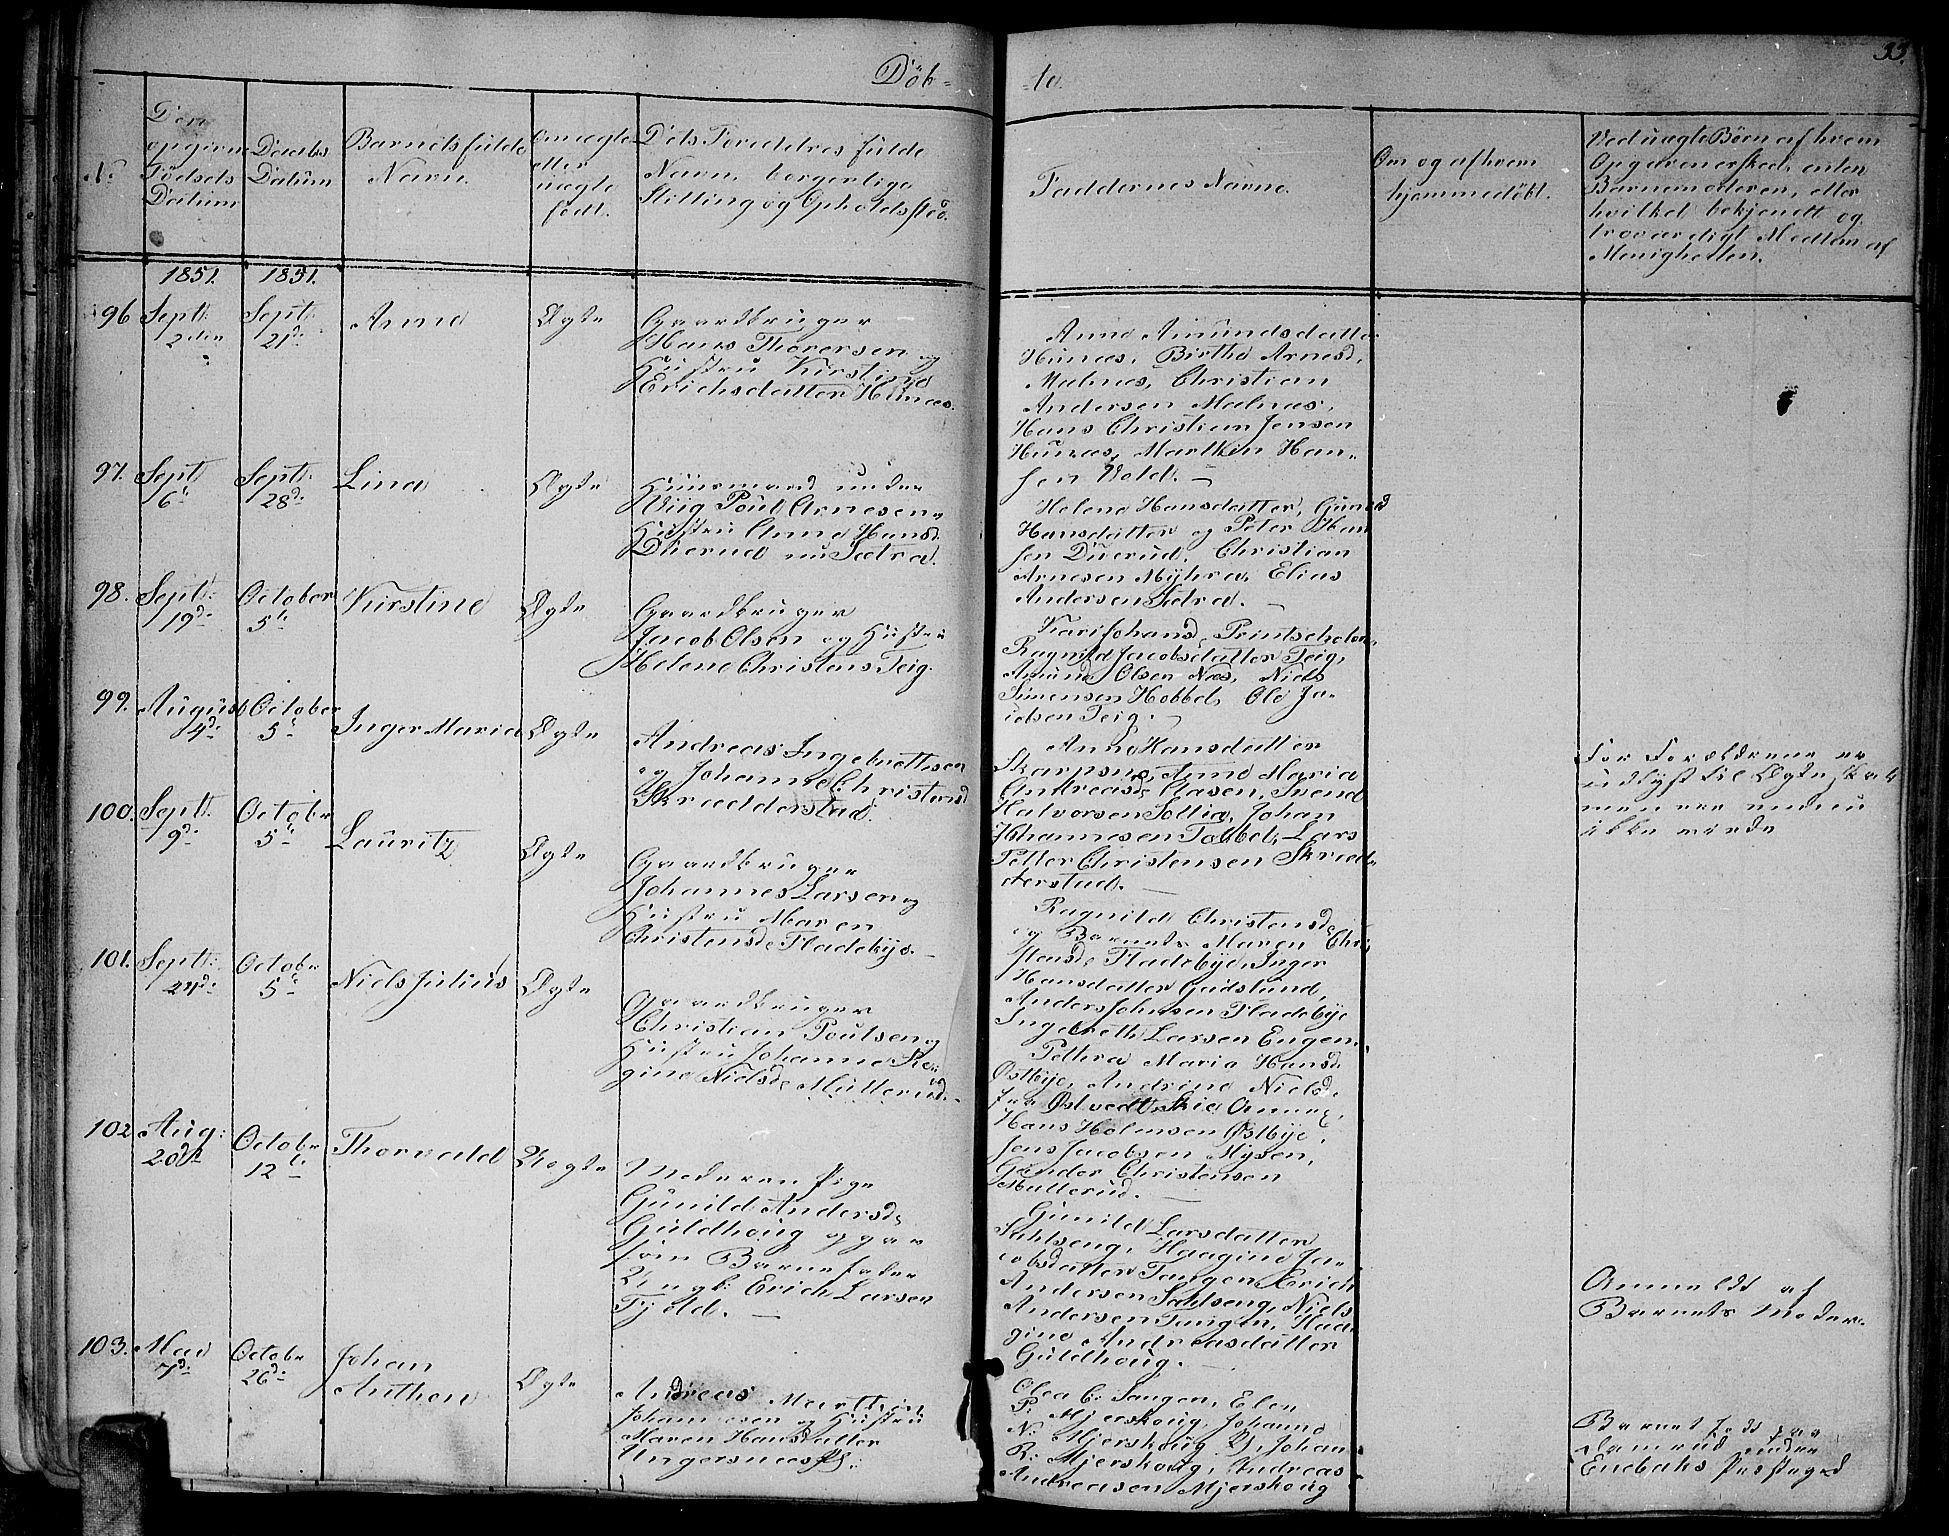 Döb-
-te
33.
N:
Den
opgivne
Fødsels
Datum
Daabs
Datum
Barnets fulde
Navn.
Om ægte
eller
uægte
født.
Dets Foreldres fulde
Navn, borgerlige
Stilling og Opholdssted.
Faddernes Navne.
Om og af hvem
hjemmedöbt.
Ved uægte Börn af hvem
Opgaven er skeed, enten
Barnemoderen, eller
hvilket bekjendt og
troværdigt Medlem af
Menigheden.
1851. 1851.
96 Sept: 2den
Sept: 21de
Anne
Ægte
Gaardbruger
Hans Thorersen og
Hustru Kirstine
Erichsdatter Hunæs.
Anne Amundsdatter
Hunæs, Birthe Arnesd.
Malnæs, Christian
Andersen Malnæs,
Hans Christian Jensen
Hunæs, Marthin Han-
sen Vold. -
97. Sept 6te
Sept: 28de
Lina
Ægte
Huusmand under
Viig Poul Arnesen
Hustru Anne Hansd.
Duerud nu Sætra.
Helene Hansdatter, Gunild
Hansdatter og Peter Han
sen Duerud, Christian
Arnesen Myhra, Elias
Andersen Sætra. -
98. Sept: 19de
October 5te
Kirstine
Ægte
Gaardbruger
Jacob Olsen og Hustru
Helene Christens Teig.
Kari Johansd.
Ragnild Jacobsdatter Teig,
Amund Olsen Næs, Niels
Simensen Hobbel, Ole Ja-
Teig. -
99. August 4de
October 5te
Inger Maria
Ægte
Andreas Ingebrettsen
og Johanne Christensd
Skrædderstad.
Anne Hansdatter
Anne Maria
Andreasd. Aasen, Svend
Halvorsen Sollia, Johan
Johannesen Lars
Petter Christensen Skræd-
derstad. -
For Forældrene er
udlyst til Ægteskab
men ere endnu
ikke viede
100. Sept: 9de
Octobr 5te
Lauritz
Ægte
Gaardbruger
Johannes Larsen og
Hustru Maren
Christensd. Fladebye. -
Ragnild Christensd.
og Barnets Maren Chri
stensd. Fladebye, Inger
Hansdatter Gudslund,
Anders Johnsen Fladebye
Ingebreth Larsen Engen.
101. Sept: 24de
Octobr 5te
Niels Julius
Ægte
Gaardbruger
Christian Poulsen og
Hustru Johanne Re-
gine Nielsd. Mullerud. -
Pettra Maria Hansd.
Østbye, Andrine Nielsd.
Hans Holmsen Østbye,
Jens Jacobsen Mysen,
Gunder Christensen
Mullerud. -
102 Aug: 20de
Octobr 12te
Thorvald
Uegte
Moderen Pige
Gunild Andersd.
Guldhoug opgav
som Barnefader
Ungk: Erich Larsen
Fjeld. -
Gunild Larsdatter
Sahlseng, Haagine Ja-
cobsdatter Tangen, Erich
Andersen Sahlseng, Niels
Andersen Tangen, Haa-
gine Andreasdatter
Guldhoug. -
Anmeldt af
Barnets Moder.
103. Mai 7de
Octobr 26de
Johan
Anthon
Ægte
Andreas Marthin
Johannesen og Hustru
Maren Hansdatter
Ungersnæs
Olea C: Tangen, Elen
P: Mjerskoug, Johanne
N: Mjerskoug, Johan
R: Mjerskoug, Andreas
Andreasen Mjerskoug
Barnet født paa
under
Enebaks Præstegd